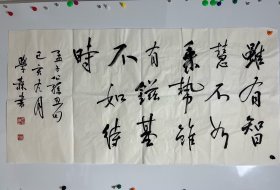 雖有智
慧不如
乘勢雖
有鎡基
不如待
時
孟子公孫丑句
己亥 月
書